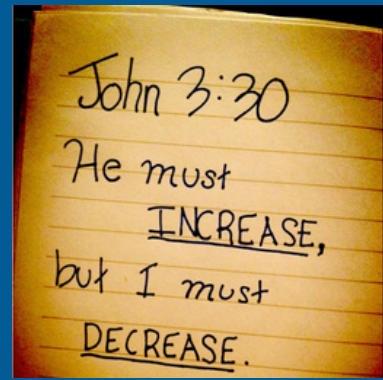 John 3:30
He must
INCREASE,
but I must
DECREASE.